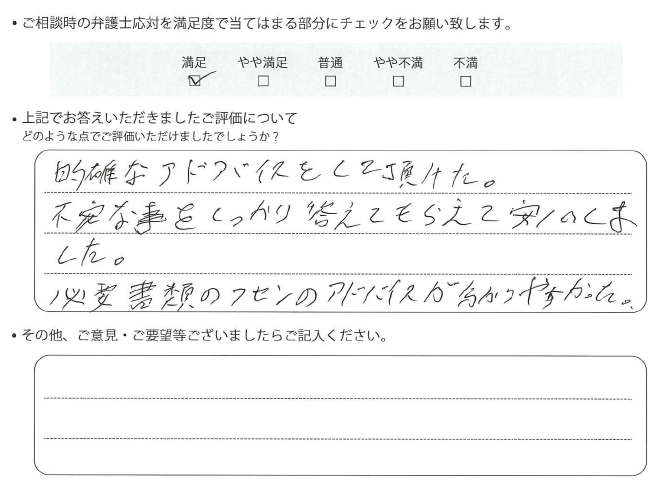 • ご相談時の弁護士応対を満足度で当てはまる部分にチェックをお願い致します。
満足 やや満足 普通 やや不満 不満
☑ □ □ □ □
• 上記でお答えいただきましたご評価について
どのような点でご評価いただけましたでしょうか？
的確なアドバイスをして頂けた。
不安な事をしっかり答えてもらえて安心しま
した。
必要書類のフセンのアドバイスが分かりやすかった。
• その他、ご意見・ご要望等ございましたらご記入ください。